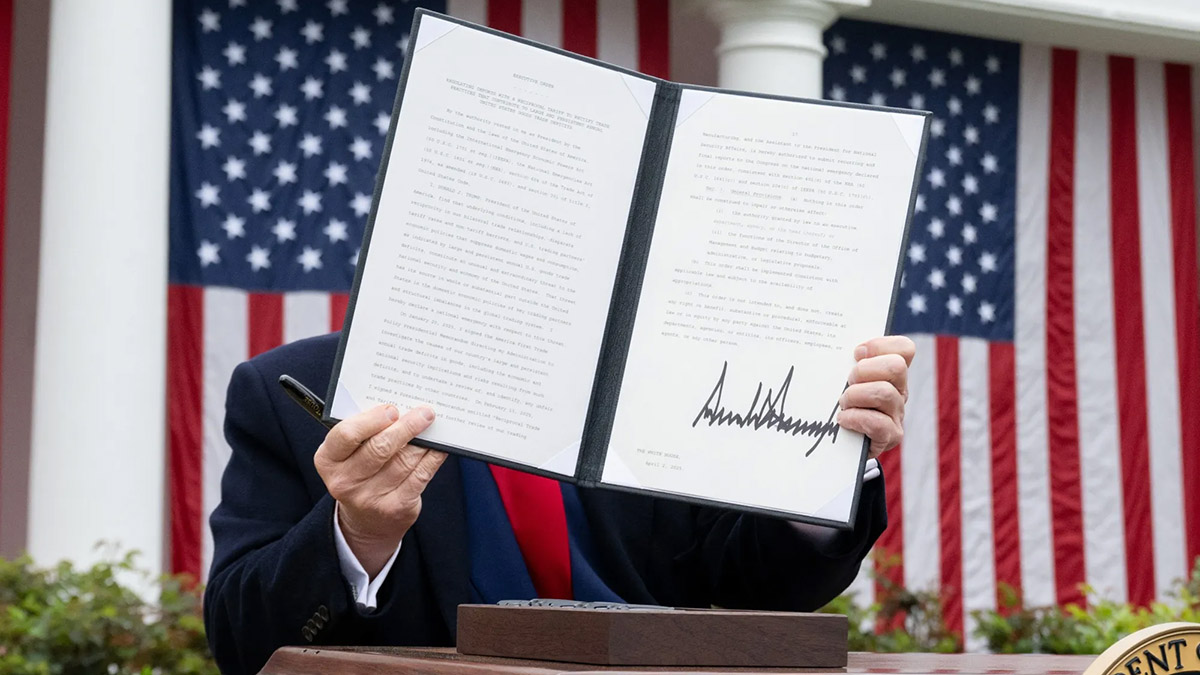 EXECUTIVE ORDER
REGULATING IMPORTS WITH A RECIPROCAL TARIFF TO RECTIFY TRADE
PRACTICES THAT CONTRIBUTE TO LARGE AND PERSISTENT ANNUAL
UNITED STATES GOODS TRADE DEFICITS
By the authority vested in me as President by the
Constitution and the laws of the United States of America,
including the International Emergency Economic Powers Act
(50 U.S.C. 1701 et seq.)(IEEPA), the National Emergencies Act
(50 U.S.C. 1601 et seq.)(NEA), section 604 of the Trade Act of
1974, as amended (19 U.S.C. 2483), and section 301 of title 3,
United States Code,
I, DONALD J. TRUMP, President of the United States of
America, find that underlying conditions, including a lack of
reciprocity in our bilateral trade relationships, disparate
tariff rates and non-tariff barriers, and U.S. trading partners'
economic policies that suppress domestic wages and consumption,
as indicated by large and persistent annual U.S. goods trade
deficits, constitute an unusual and extraordinary threat to the
national security and economy of the United States. That threat
has its source in whole or substantial part outside the United
States in the domestic economic policies of key trading partners
and structural imbalances in the global trading system. I
hereby declare a national emergency with respect to this threat.
On January 20, 2025, I signed the America First Trade
Policy Presidential Memorandum directing my Administration to
investigate the causes of our country's large and persistent
annual trade deficits in goods, including the economic and
national security implications and risks resulting from such
deficits, and to undertake a review of, and identify, any unfair
trade practices by other countries. On February 13, 2025,
I signed a Presidential Memorandum entitled "Reciprocal Trade
and Tariffs," that directed further review of our trading
17
Manufacturing, and the Assistant to the President for National
Security Affairs, is hereby authorized to submit recurring and
final reports to the Congress on the national emergency declared
in this order, consistent with section 401(c) of the NEA (50
U.S.C. 1641(c)) and section 204(c) of IEEPA (50 U.S.C. 1703(c)).
General Provisions. (a) Nothing in this order
shall be construed to impair or otherwise affect:
(i) the authority granted by law to an executive
department, agency, or the head thereof; or
(ii) the functions of the Director of the Office of
Management and Budget relating to budgetary,
administrative, or legislative proposals.
(b) This order shall be implemented consistent with
applicable law and subject to the availability of
appropriations.
(c) This order is not intended to, and does not, create
any right or benefit, substantive or procedural, enforceable at
law or in equity by any party against the United States, its
departments, agencies, or entities, its officers, employees, or
agents, or any other person.
THE WHITE HOUSE,
April 2, 2025.
DENT O